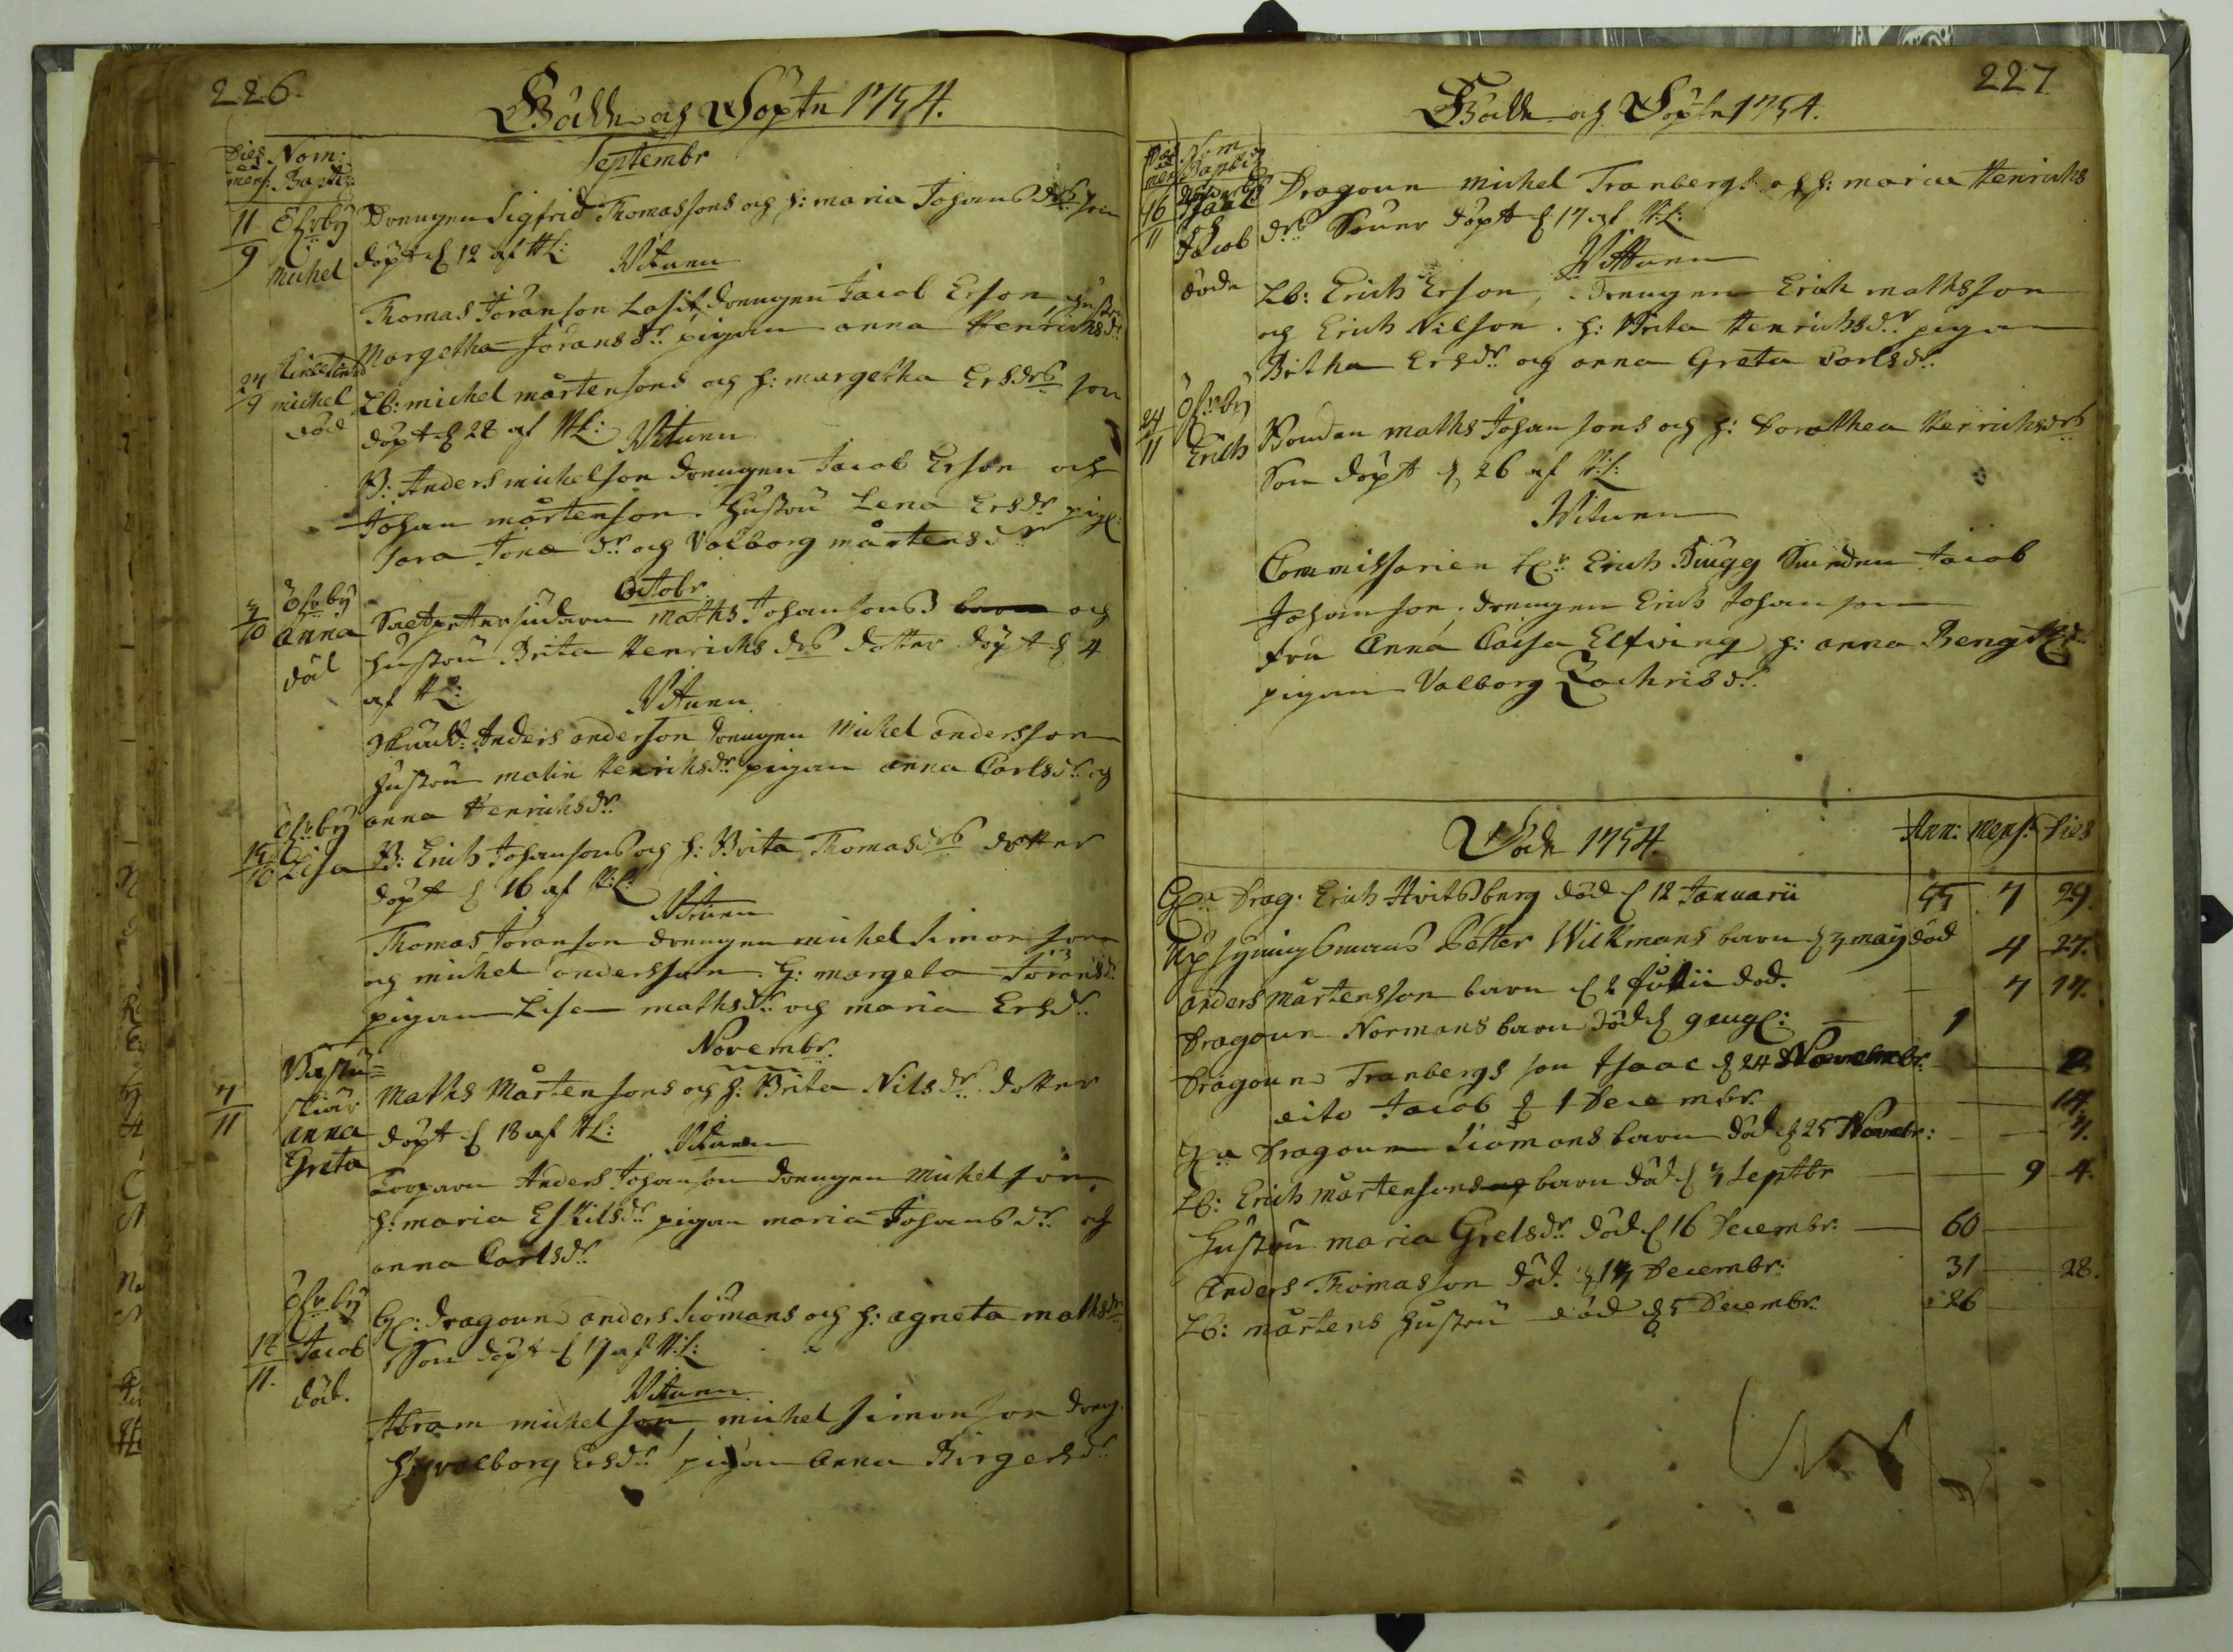 226.
Födde och Döpte 1754.
Dies et mens: Nom: Baptiz:
Septembr
11/9 Öfverby Michel
Drengen Sigfrid Thomassons och h: maria Johansdrs son
döpt d 12 af HL:
Vitnen
Thomas Jöranson Lasit. drengen Jacob Erson, hustru
Margetha Jöransdr. pigan anna Henrichsdr
27/9 michel död
LB: michel mårtensons och h: margetha Ersdrs son
döpt d 28 af HL:
Vitnen
B: Anders michelson drengen Jacob Erson och
Johan mårtenson. hustru Lena Ersdr pig:
Sara Jonæ dr. och Valborg mårtensdr
Octobr.
3/10 Öfverby anna död
maths Johansons och
hustru Brita Henrichsdrs dotter döpt d 4
af HL:
Vitnen
Anders anderson drengen Michel andersson
hustru malin Henrichsdr. pigan anna Carlsdr. och
anna Henrichsdr.
15/10 Öfverby Lisa
B: Erich Johansons och h: Brita Thomasdrs dotter
döpt d 16 af H:L:
Vitnen
Thomas Jöranson drengen michel Simonson
och michel andersson. H: margeta Jöransdr.
pigan Lisa mathsdr. och maria Ersdr.
Novembr.
7/11 Bastuskiär anna Greta
Maths Mårtensons och h. Brita Nilsdr. dotter
döpt d 18 af HL:
Vitnen
Anders Johanson drengen Michel
h: maria Eskilsdr. pigan maria Johansdr. och
anna Carlsdr.
12/11. Öfverby Jacob död.
dragoun anders Siömans och h: agneta mathsdr
Son döpt d 17 af H:L:
Vitnen
Abram michelson, michel simonson dreng.
H: valborg Ersdr. pigan Anna Birgersdr.
227
Födde och Döpte 1754.
Dies et mens Nom Baptiz
16/11 Isaac Jacob döde
Dragoun Michel Tranbergs och h: maria Henrichs
drs Söner döpt d 17 af H:L:
Vittnen
LB: Erich Erson, drengen Erich mathsson
och Erich Nilson. h: Brita Henrichsdr. pigan
Britha Ersdr. och anna Greta Carlsdr.
24/11 Öfverby Erich
Bonden maths Johansons och h: Dorothea Henrichsdrs
Son döpt d 26 af H:L:
Vitnen
Commissarien Hr Erich Bugg Jacob
Johanson, drengen Erich Johanson
fru Anna Caisa Elfving h: anna Bengtsdr.
pigan Valborg Zachrisdr.
Döde 1754. Ann: mens: Dies
Drag: Erich Hvitsberg död d 12 Januarii 55 7 29.
Upsyningsmans Petter Wickmans barn d 3 maij död 4 27.
anders mårtensson barn d 2 Julii död. 7 17.
Dragoun Normans barn död d 9 aug: 1
Dragoun Tranbergs son Isaac d 24 Novembr. 8
dito Jacob d 1 Decembr. 14.
Dragoun Siömans barn död d 25 Novebr: 7.
LB: Erich mårtensons barn död d 3 Septbr 9 4.
hustru maria Grelsdr. död d 16 Decembr. 60
anders Thomasson död. d 17 Decembr: 31 28.
LB: mårtens hustru död d 5 Decembr. 26